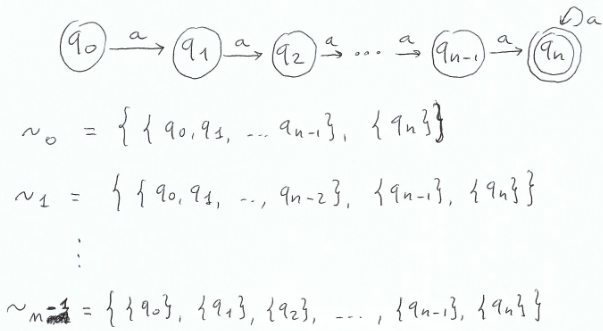 q0 a q1 a q2 a ... a qn-1 a qn a
~0 = { { q0, q1, ... qn-1}, {qn} }
~1 = { { q0, q1, .., qn-2}, {qn-1}, {qn} }
⋮
~n-1 = { {q0}, {q1}, {q2}, ..., {qn-1}, {qn} }